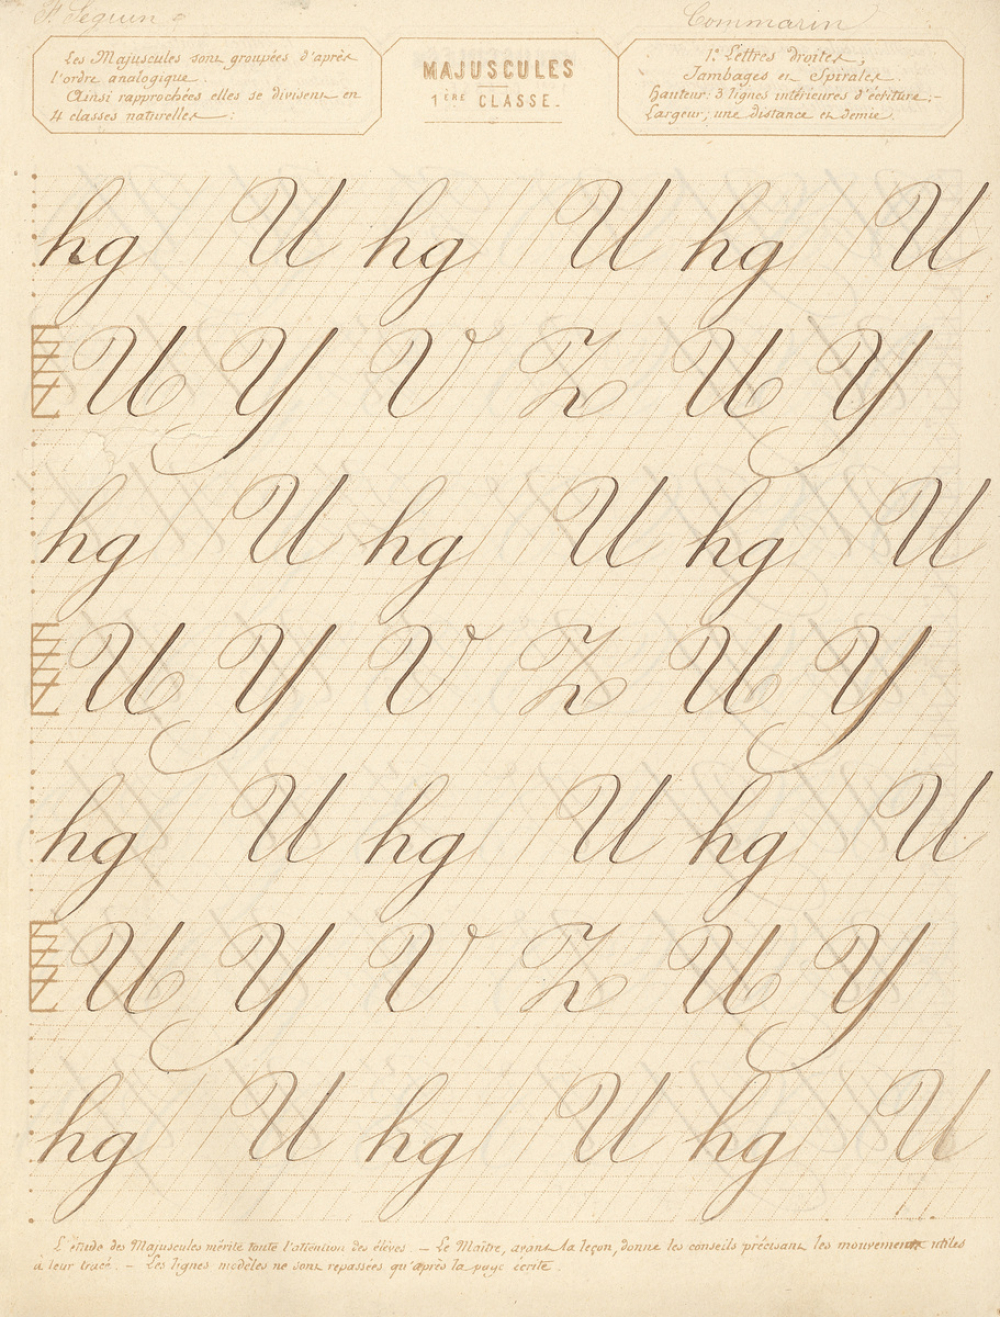 F. Seguin
Commarin
Les Majuscules sont groupées d'après
l'ordre analogique.
Ainsi rapprochées elles se divisent en
4 classes naturelles :
MAJUSCULES
1ÈRE CLASSE.
1º Lettres droites ;
Jambages et Spirales.
Hauteur: 3 lignes intérieures d'écriture ;-
Largeur ; une distance et demie.
hg U hg U hg U
U Y V Z U Y
hg U hg U hg U
U Y V Z U Y
hg U hg U hg U
U Y V Z U Y
hg U hg U hg U
L'étude des Majuscules mérite toute l'attention des élèves. – Le Maître, avant la leçon, donne les conseils précisant les mouvements utiles
à leur tracé. – Les lignes modèles ne sont repassées qu'après la page écrite.